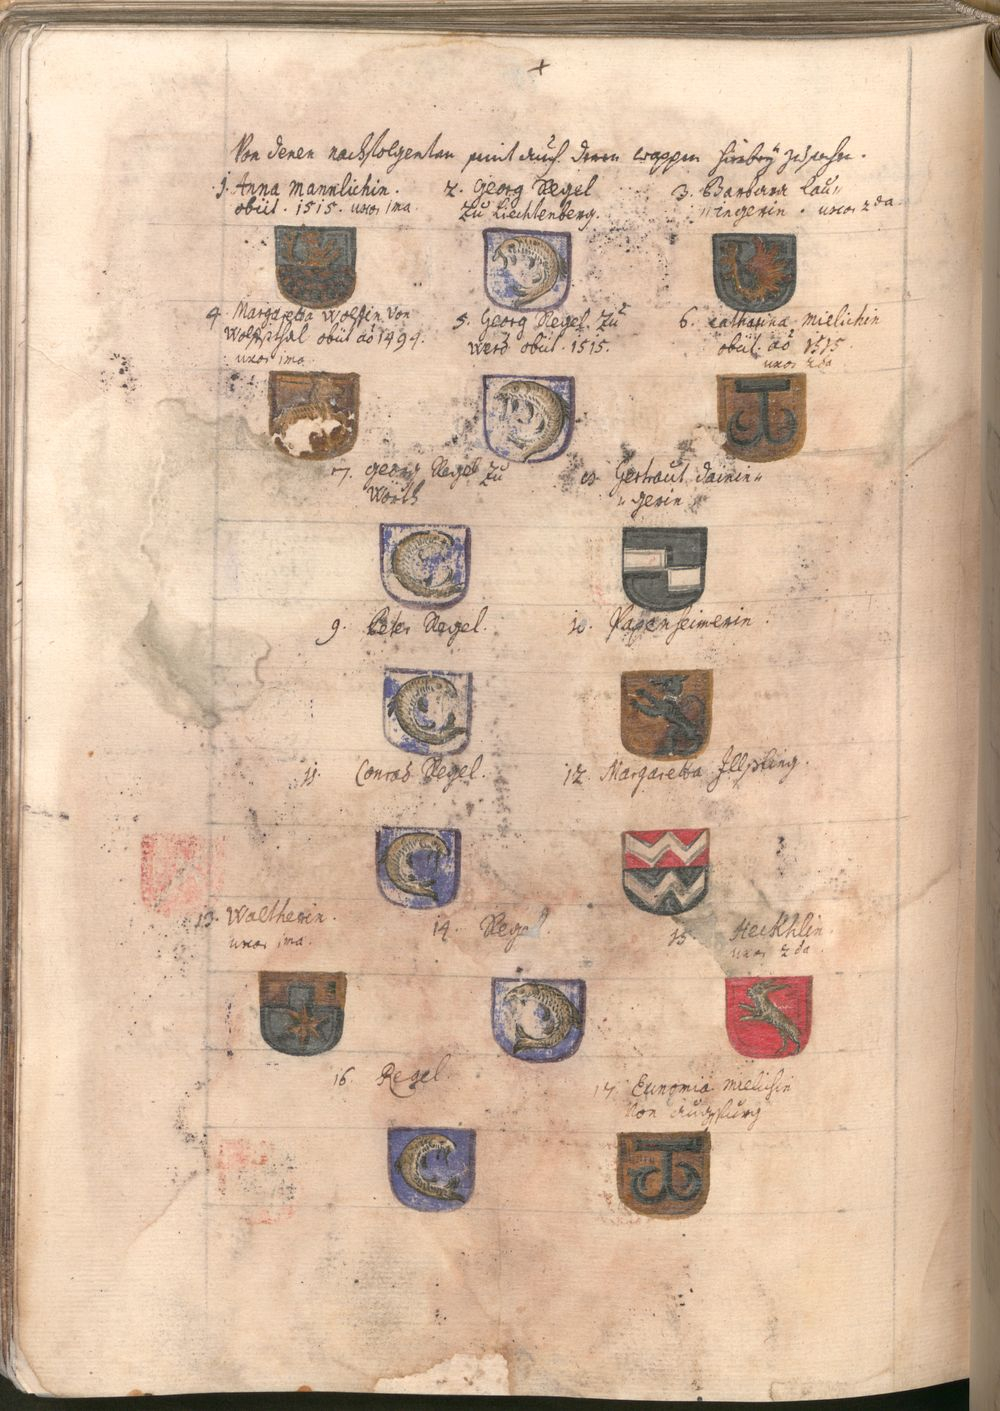 +
Von denen nachfolgenten seint auch deren wappen hiebey zusehen.
1. Anna Mannlichin.
obiit. 1515. uxor 1ma.
2. Georg Regel
zu Liechtenberg.
3. Barbara Lau„
„ingerin. uxor 2da.
4. Margaretha Wolffin von
Wolfsthal obiit ao 1494.
uxor 1ma
5. Georg Regel zu
Werd obiit. 1515.
6. Catharina Mielichin
obiit. ao 1515.
uxor 2da
7. Georg Regel zu
Wörth
8. Gertraut Dainin„
„gerin
9. Peter Regel.
10. Papenheimerin.
11. Conrad Regel.
12. Margaretha Illsung.
13. Waltherin.
uxor 1ma.
14. Regel.
15. Heckhlin.
uxor 2da
16. Regel.
17. Eunomia Mielichin
von Augspurg